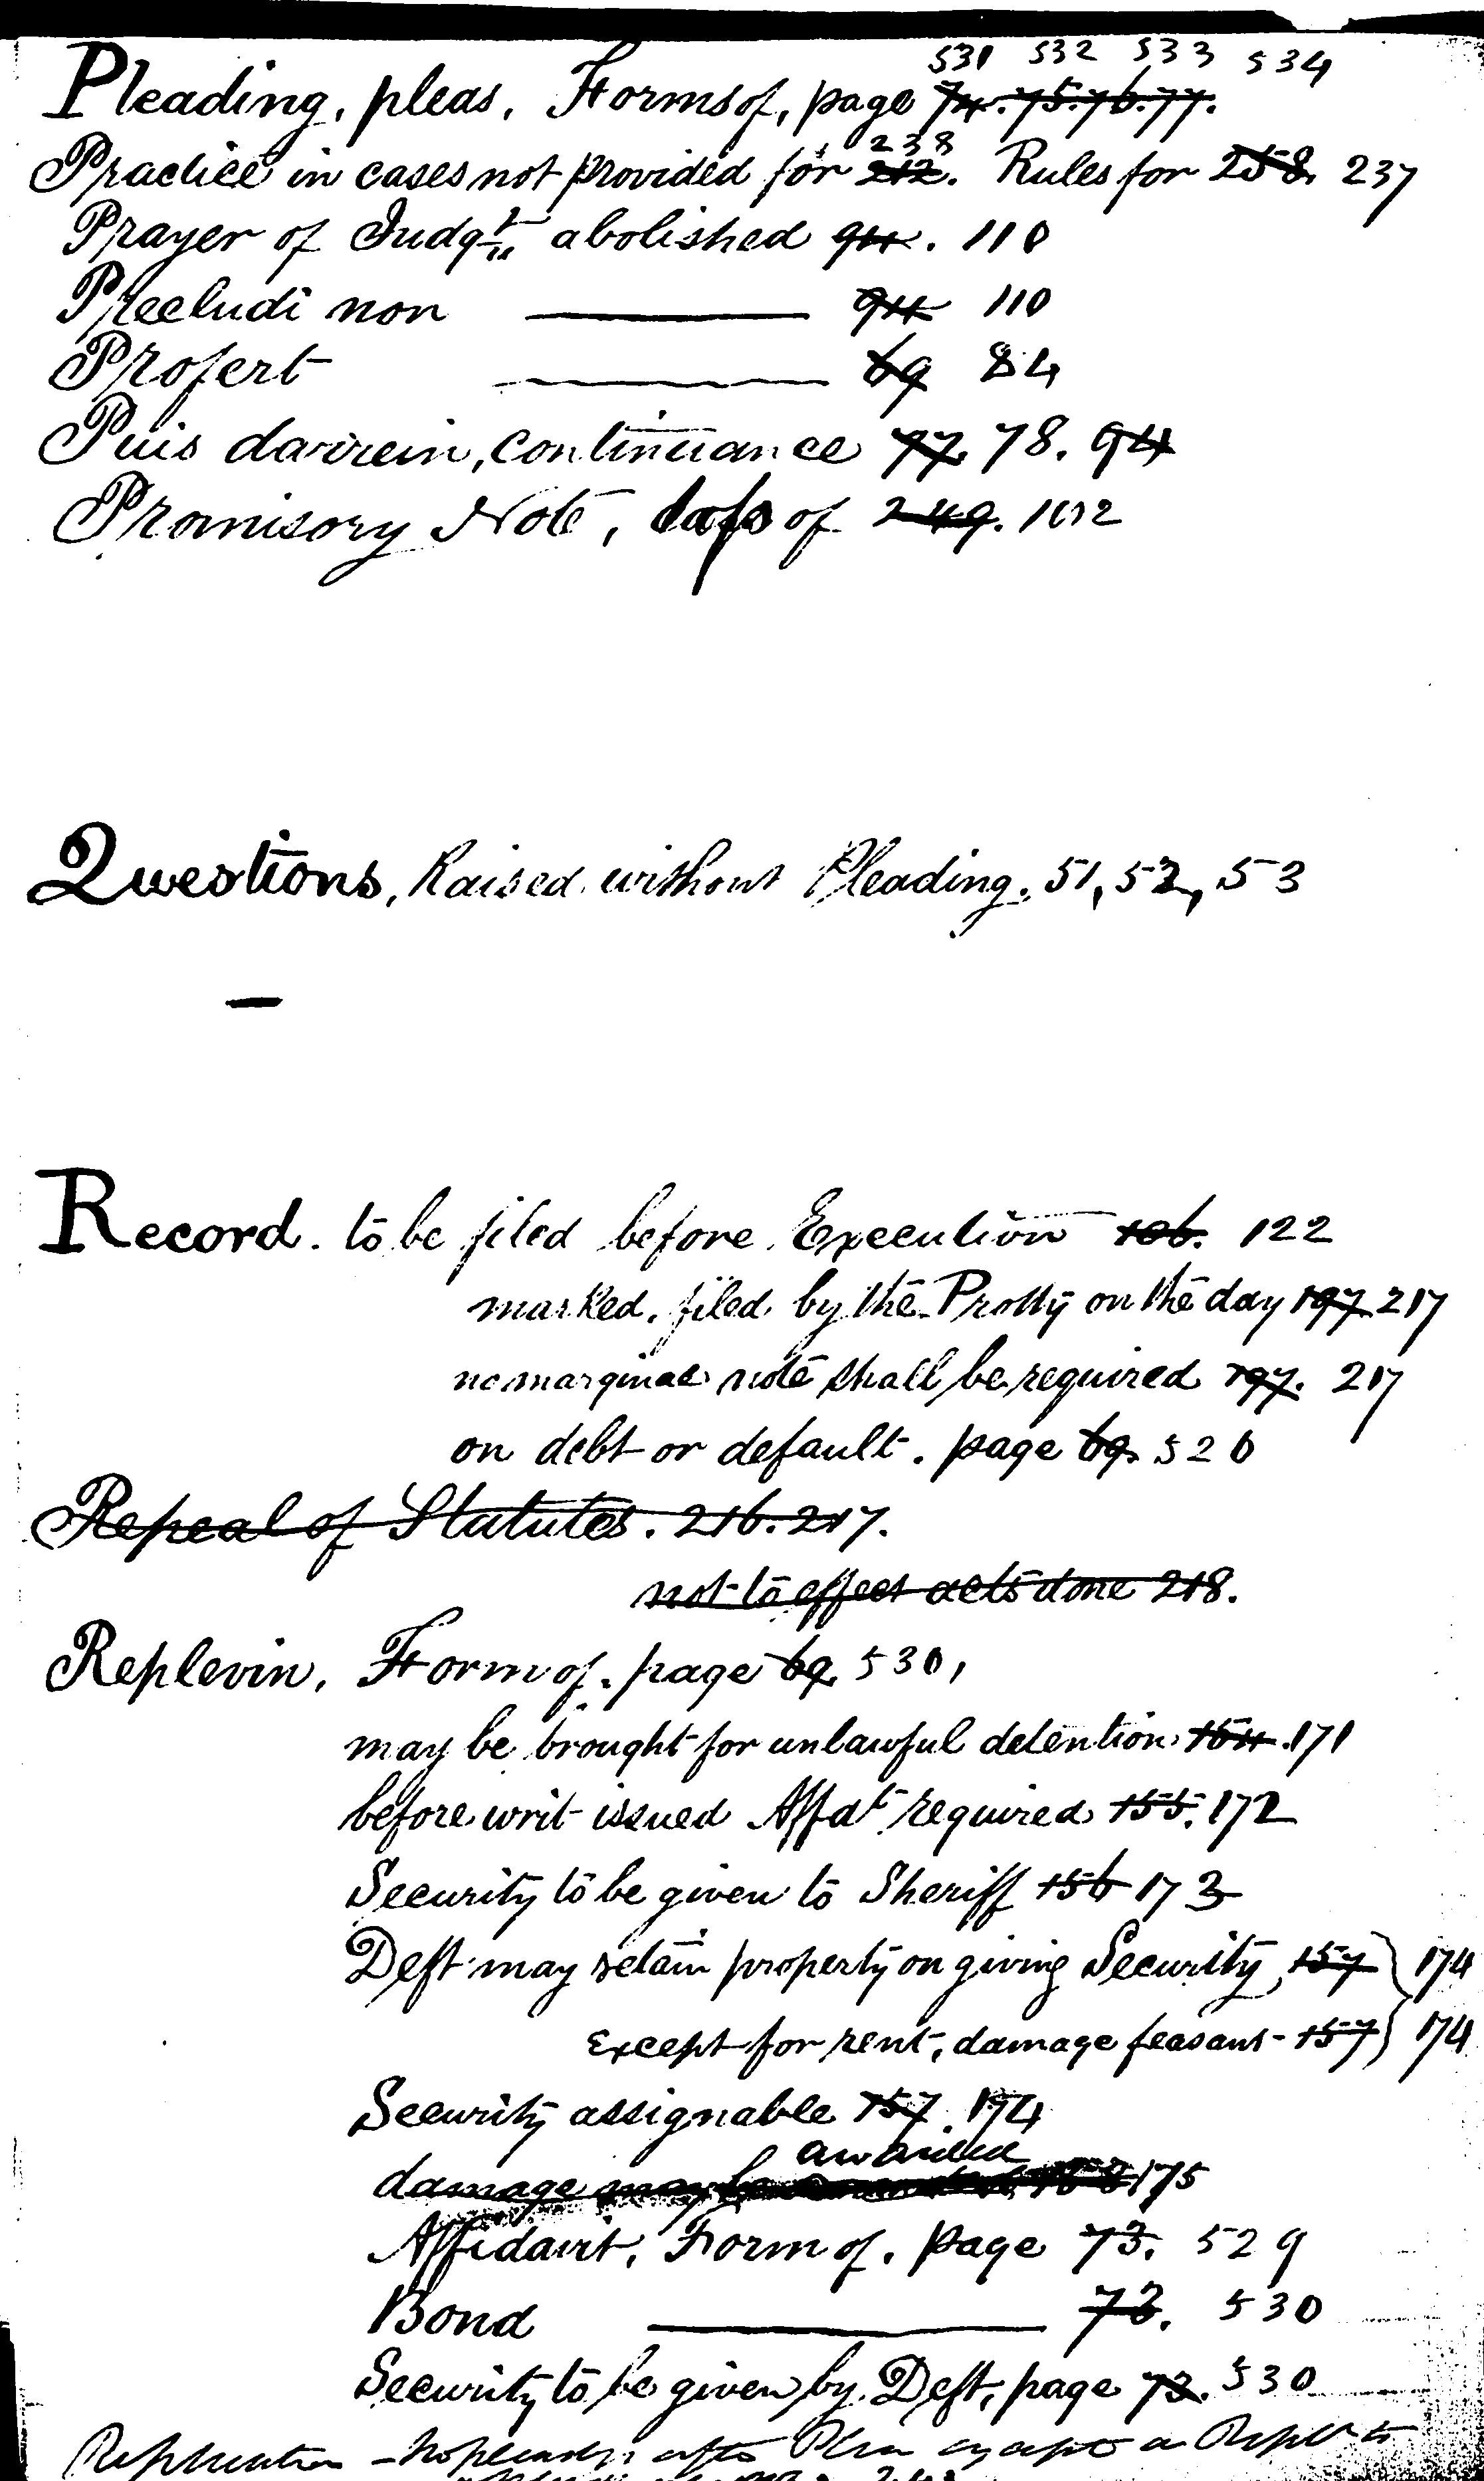 531 532 533 534
Pleading, pleas, Forms of, page 74. 75. 76. 77.
238
Practice in cases not provided for 212. Rules for 258, 237
Prayer of Judgt. abolished 94. 110
Precludi non ——— 94 110
Profert ——— 69 84
Puis darrein, continuance 77, 78. 94
Promisory Note, loss of 249. 102
Questions, Raised without Pleading, 51, 52, 53
—
Record. to be filed before Execution 106. 122
marked, filed by the Protty on the day 197 217
no marginal note shall be required 197. 217
on debt or default. page 69. 526
Repeal of Statutes. 216. 217.
not to effect acts done 218.
Replevin, Form of, page 69 530,
may be brought for unlawful detention 154. 171
before writ issued Affdt required 155. 172
Security to be given to Sheriff 156 173
Deft may retain property on giving Security, 157 } 174
Except for rent, damage feasant 157 } 174
Security assignable 157. 174
awarded
damage may be 158 175
Affidavit, Form of. page 73. 529
Bond ——— 73. 530
Security to be given by Deft, page 73. 530
Replication – No pleading after Plea except a Repl to